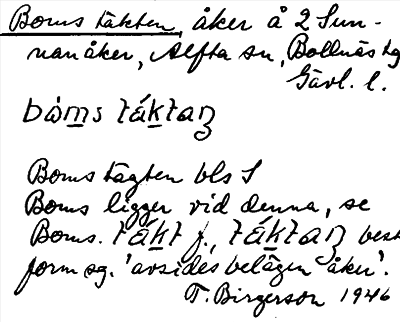 Boms täkten, åker å 2 Sun-
nanåker, Alfta sn, Bollnäs tg
Gävl. l.
bòms táktaꞃ
Boms tägten bls S
Boms ligger vid denna, se
Boms. tákt f., táktaꞃ best
form sg. 'avsides belägen åker'.
T. Birgerson 1946